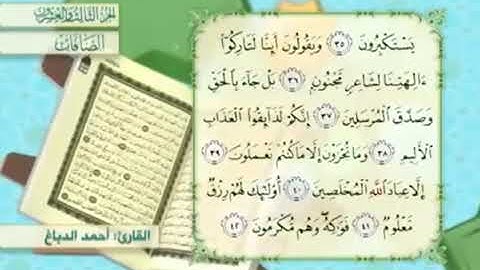 الجزء الثالث والعشرون
الصافات
يَسْتَكْبِرُونَ ٣٥ وَيَقُولُونَ أَئِنَّا لَتَارِكُوٓا۟
ءَالِهَتِنَا لِشَاعِرٍ مَّجْنُونٍ ٣٦ بَلْ جَآءَ بِٱلْحَقِّ
وَصَدَّقَ ٱلْمُرْسَلِينَ ٣٧ إِنَّكُمْ لَذَآئِقُوا۟ ٱلْعَذَابِ
ٱلْأَلِيمِ ٣٨ وَمَا تُجْزَوْنَ إِلَّا مَا كُنتُمْ تَعْمَلُونَ ٣٩
إِلَّا عِبَادَ ٱللَّهِ ٱلْمُخْلَصِينَ ٤٠ أُو۟لَٰٓئِكَ لَهُمْ رِزْقٌ
مَّعْلُومٌ ٤١ فَوَٰكِهُ وَهُم مُّكْرَمُونَ ٤٢
القارئ: أحمد الدباغ